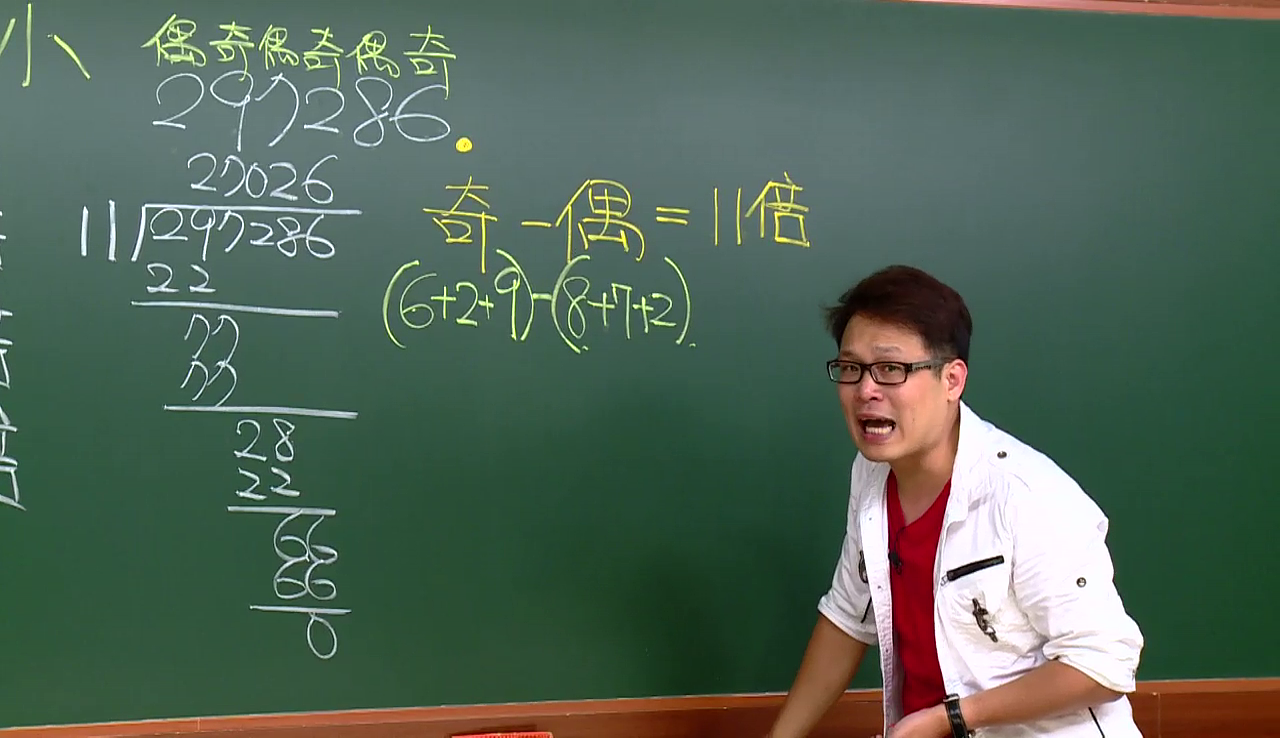 小
偶奇偶奇偶奇
297286.
27026
11 297286
22
77
77
28
22
66
66
0
奇-偶=11倍
(6+2+9)-(8+7+2)